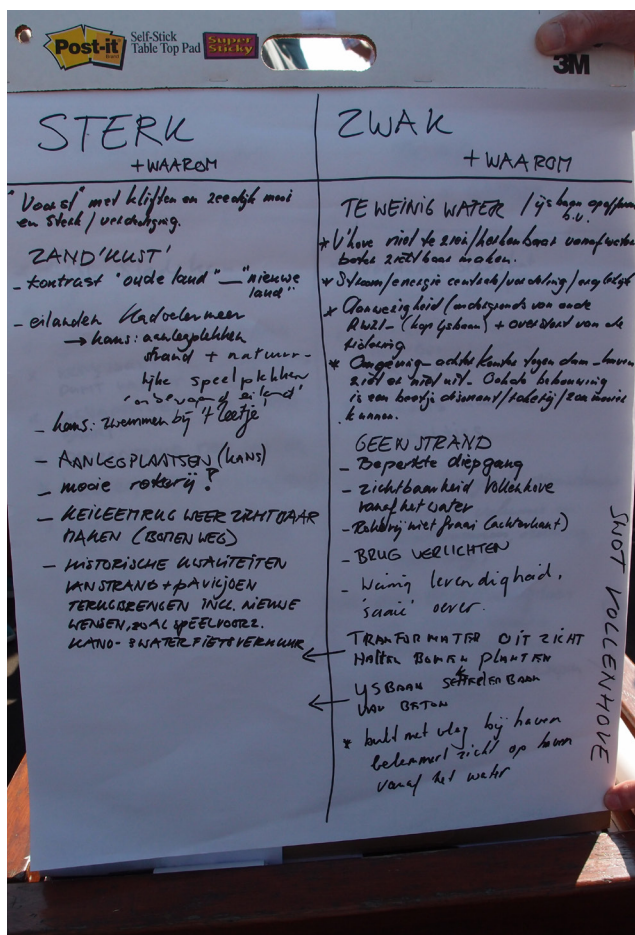 Post-it
Self-Stick
Table Top Pad
Super
Sticky
3M
STERK
+ WAAROM
"Voorst" met kliffen en zeedijk mooi
en sterk / verdediging.
ZAND 'KUST'
- kontrast "oude land" — "nieuwe
land"
- eilanden Kadoelermeer
→ kans: aanlegplekken
strand + natuur-
lijke speelplekken
'onbewoond eiland'
- kans: zwemmen bij 't Leetje
- AANLEGPLAATSEN (KANS)
- mooie rokerij?
- KEILEEMRUG WEER ZICHTBAAR
MAKEN (BOMEN WEG)
- HISTORISCHE KWALITEITEN
VAN STRAND + PAVILJOEN
TERUGBRENGEN INCL. NIEUWE
WENSEN, ZOALS SPEELVOORZ.
KANO- & WATERFIETSVERHUUR
ZWAK
+ WAAROM
TE WEINIG WATER / ijsbaan opofferen
b.v.
* V'hove niet te zien/herkenbaar vanaf water
beter zichtbaar maken.
* Stroom/energie centrale/verdeling/
* Aanwezigheid / van oude
RWZI - (kop ijsbaan) + overstort van de
riolering
* Omgeving achter Kamper tegen dam - haven
ziet er niet uit. Ook de bebouwing
is een beetje dissonant/rokerij/zou mooier
kunnen.
GEEN STRAND
- Beperkte diepgang
- zichtbaarheid Vollenhove
vanaf het water
- Rokerij niet fraai (achterkant)
- BRUG VERLICHTEN
- Weinig levendigheid,
'saaie' oever.
TRANFORMATER UIT ZICHT
HALEN BOMEN PLANTEN
IJSBAAN SKEELERBAAN
VAN BETON
* bult met vlag bij haven
belemmert zicht op haven
vanaf het water
SWOT VOLLENHOVE